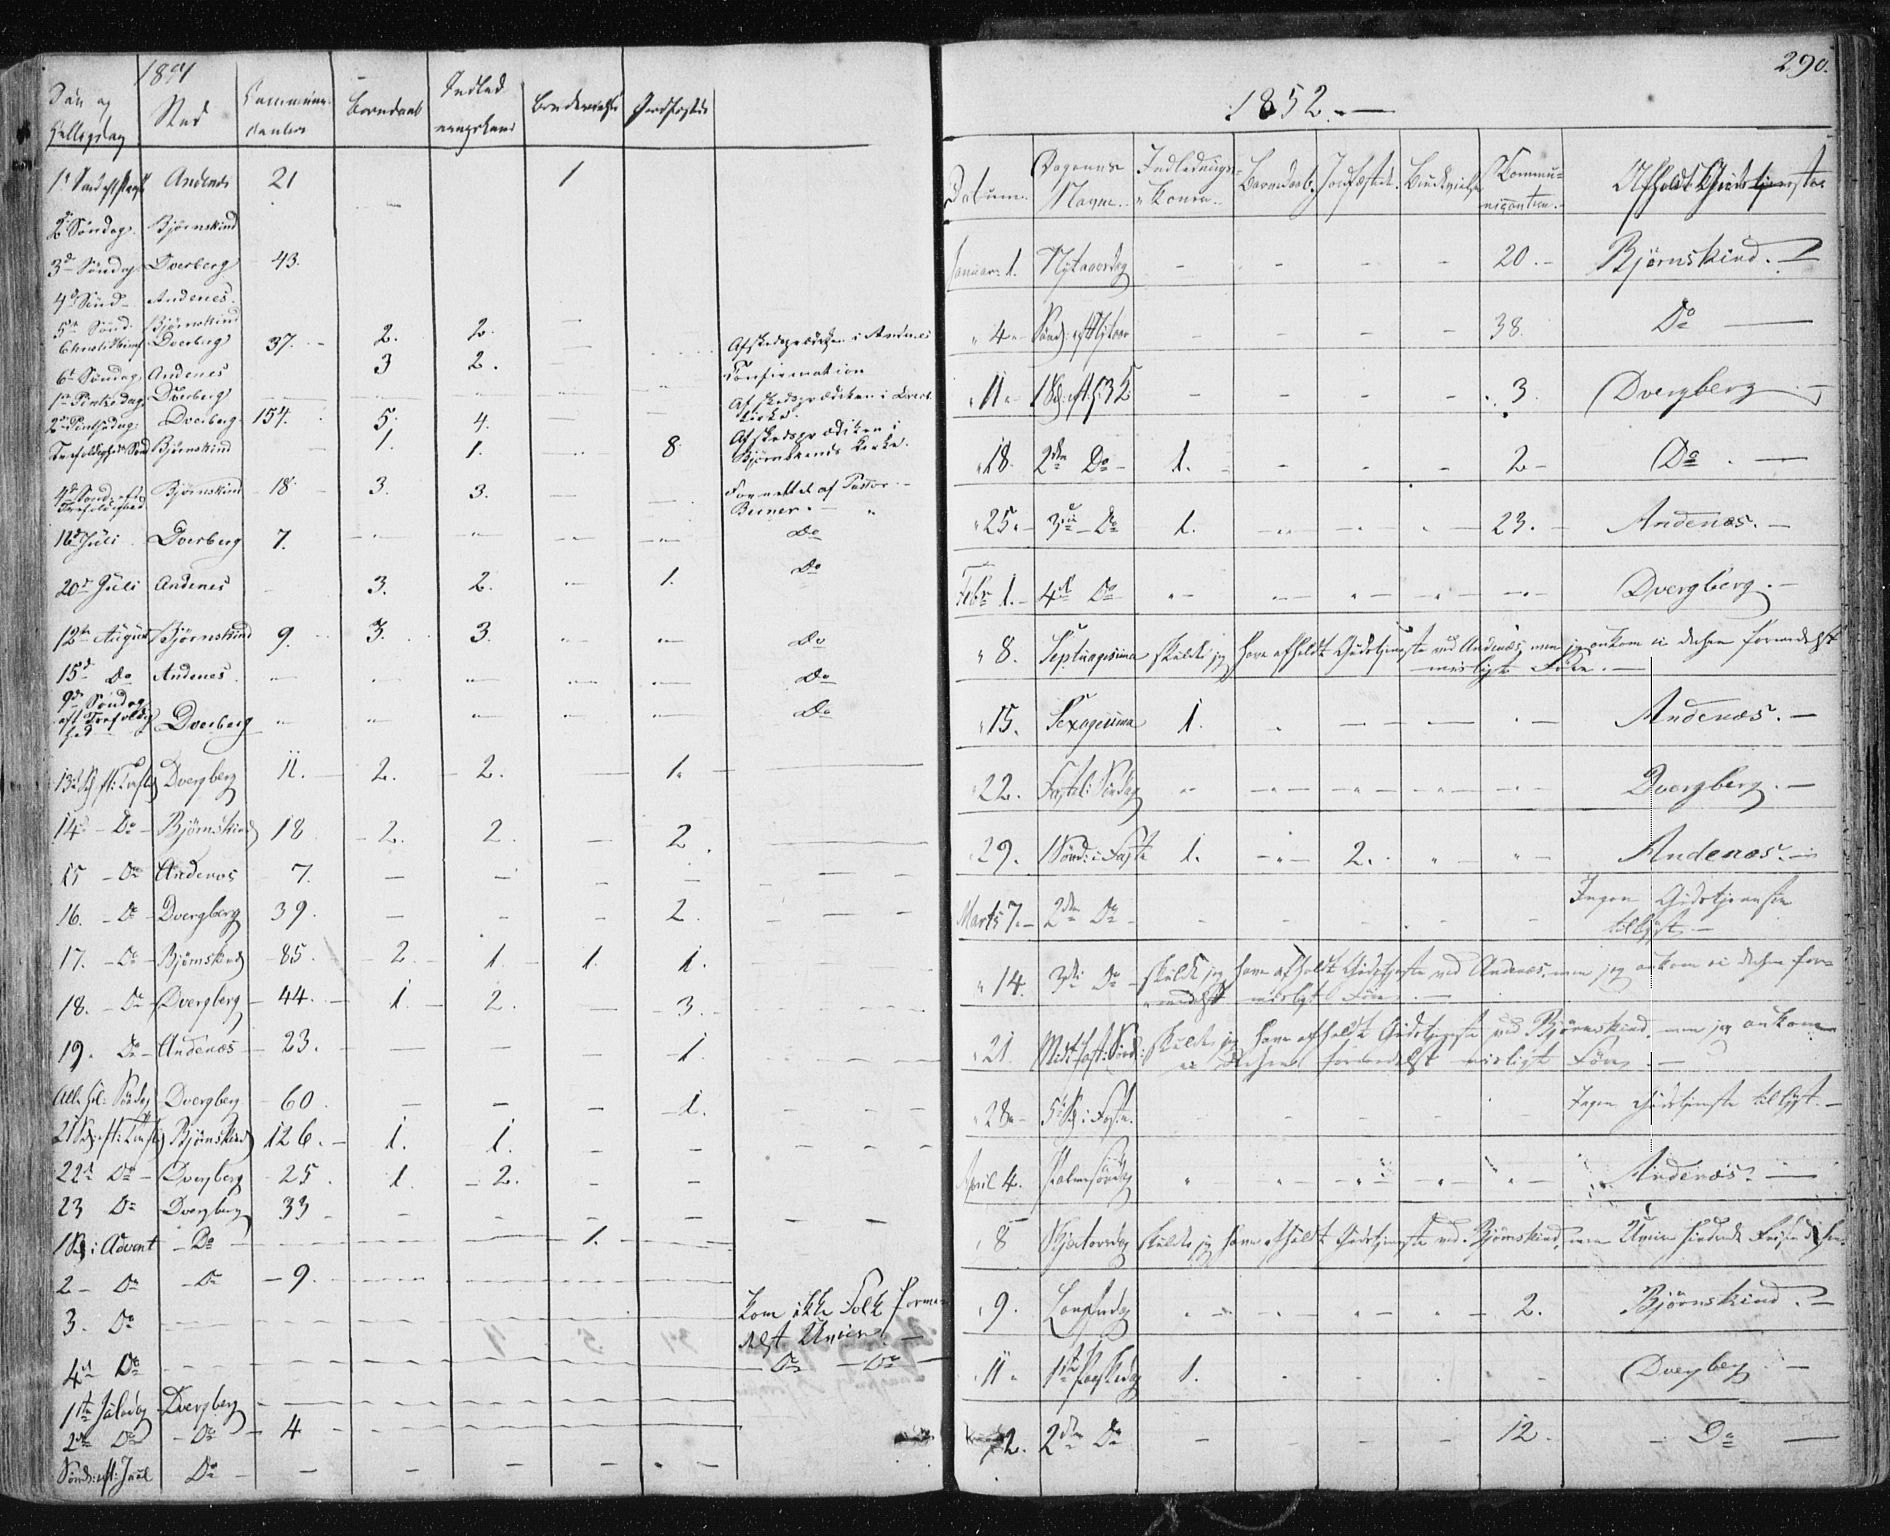 Søn og Helligdag Sted Communicanter Barndaab Indledningskoner Brudevielse Jordfæstede
2d Søndag Bjørnskind
3d Søndag Dverberg 43.
4d Sønd Andenes.
5te Sønd. Bjørnskind
Dverberg 37. 2. 2. Afskedsprædiken i Andenes
6te Søndag Andenes 3 2. Confirmation
1ste Pintsedag Dverberg Afskedsprædiken i
2den Pintsedag Dverberg 154. 5. 4. Kirke.
Trefoldigheds Sønd Bjørnskind 1. 1. 8. Afskedsprædiken i
Bjørnskinds Kirke.
4de Sønd. efter Trefoldighed Bjørnskind 18 3. 3. Forrettet af Pastor
Juli Dverberg 7. Do
20de Juli Andenes 3. 2. 1. Do
12te August Bjørnskind 9. 3. 3. Do
15d Do Andenes Do
9de Søndag eft Trefoldighed Dverberg Do
Dvergberg 11. 2. 2. 1.
14d Do Bjørnskind 18 2. 2. 2.
15 Do Andenæs 7.
16. Do Dvergberg 39. 2.
17. Do Bjørnskind 85. 2. 1. 1. 1.
18. Do Dvergberg 44. 1. 2. 3.
19. Do Andenæs 23. 1.
Alle Hel: Søndag Dvergberg 60 1.
Bjørnskind 126. 1. 1.
22d Do Dvergberg 25 1. 2.
23 Do Dvergberg 33
1 Sø: i Advent Do 1.
2 Do Do 9.
3. Do Kom ikke Folk formedelst Uveir.
4d Do Do Do
1ste Juledag Dvergberg
2den Do Do 4
Sønd: eft: Juul Do
290.
1852.
Datum. Dagenes Navne. Indlednings-Koner. Barndaab. Jordfæstede. Brudvielse. Kommunicanter. Afholdt Gudstjeneste
Januar 1. Nytaarsdag 20. Bjørnskind.
4 Sønd: eft Nytaar 38. Do
11 3. Dvergberg
18. 2den Do 1. 2 Do
25. 3die Do 1. 23. Andenæs.
Febr 1. 4de Do Dvergberg.
8. Septuagesima skulde jeg have afholdt Gudstjeneste ved Andenæs, men jeg ankom ei dertil formedelst
misligt Føre.
15. Sexagesima 1. Andenæs.
22. Fastel: Søndag Dvergberg.
29. 1 Sønd: i Faste 1. 2. Andenæs.
Marts 7. 2den Do Ingen Gudstjeneste
tillyst.
14. 3die Do skulde jeg have afholdt Gudstjeneste ved Andenæs, men jeg ankom ei dertil for-
medelst misligt Føre.
21. Midtfaste Sønd: skulde jeg have afholdt Gudstjeneste ved Bjørnskind, men jeg ankom
ei dertil formedelst misligt Føre.
28. 5te Sø: i Faste. Ingen Gudstjeneste tillyst.
April 4. Palmesøndag Andenæs.
8 Skjærtorsdag skulde jeg have afholdt Gudstjeneste ved Bjørnskind, men Uveir hindrede
9. Langfredag 2. Bjørnskind.
11 1ste Paaskedag 1. Dvergberg
12. 2den Do 12. Do